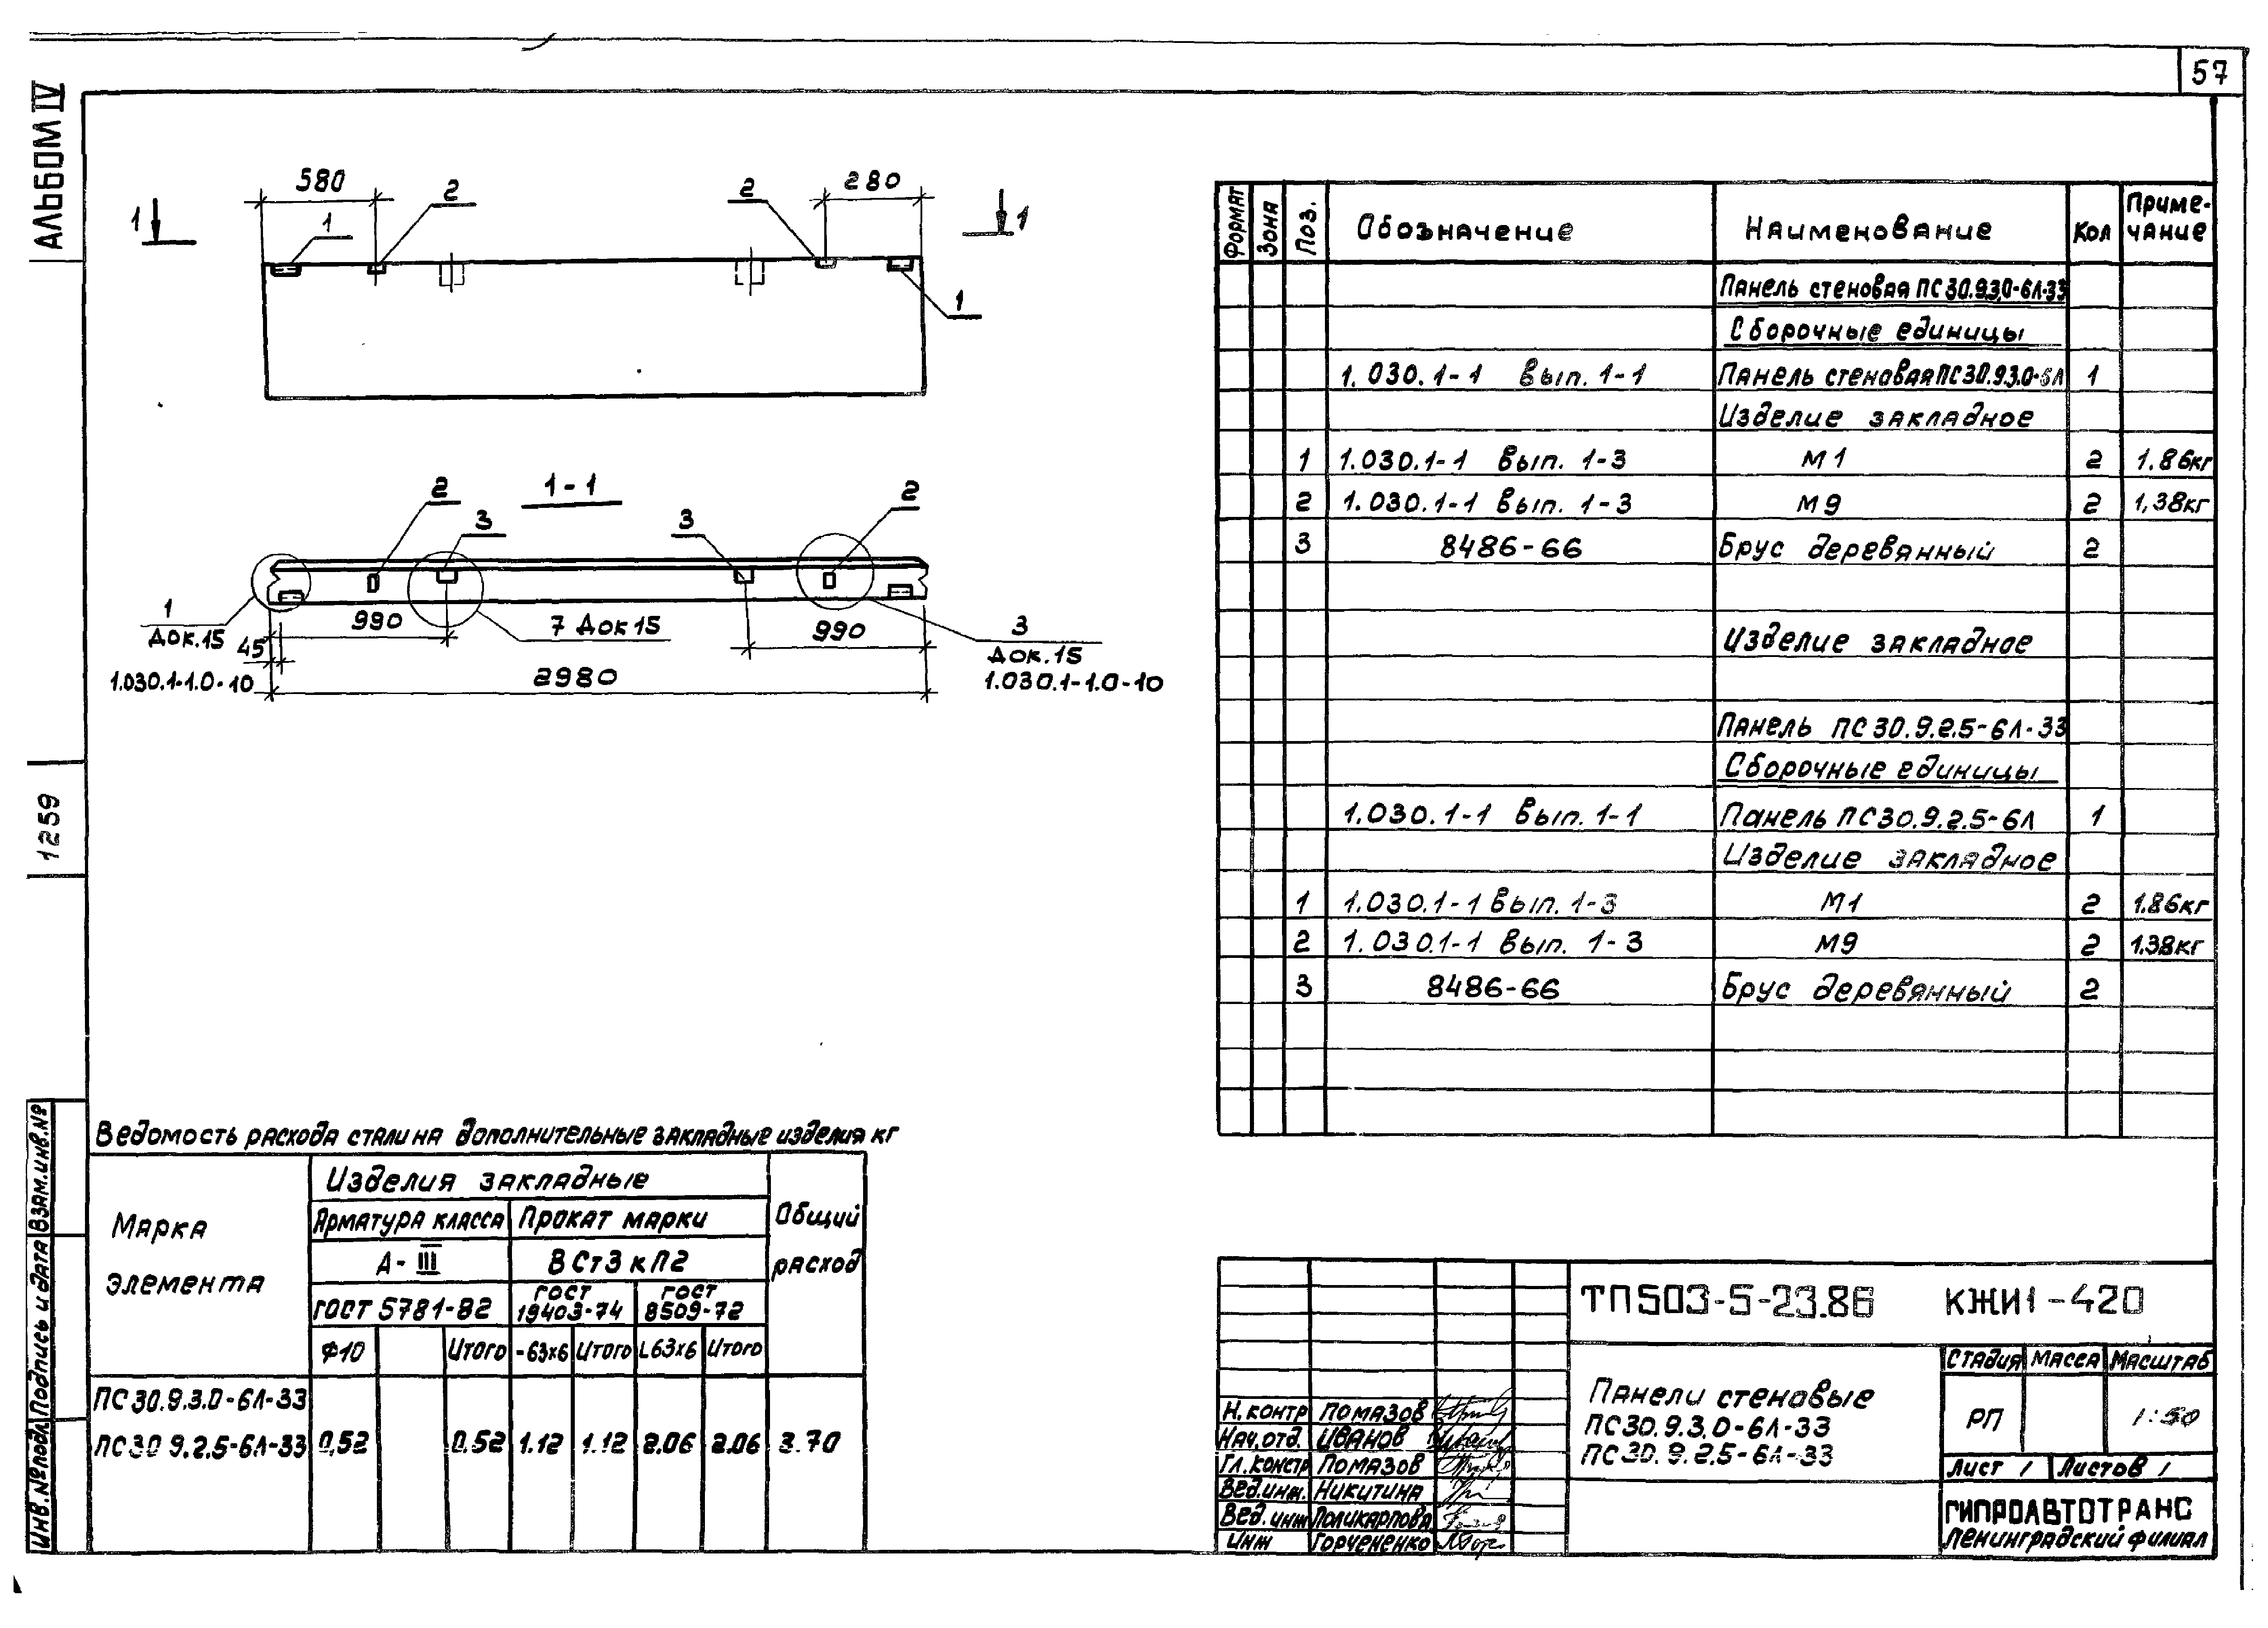 57
АЛЬБОМ IV
580
2
2
280
1
1
1
1
1-1
2
3
3
2
1
Док.15
1.030.1-1.0-10
45
990
7 Док 15
990
3
Док.15
1.030.1-1.0-10
2980
1259
ФОРМАТ Зона Поз. Обозначение Наименование Кол Приме-чание
Панель стеновая ПС 30.9.3.0-6Л-33
Сборочные единицы
1.030.1-1 Вып. 1-1 Панель стеновая ПС 30.9.3.0-6Л 1
Изделие закладное
1 1.030.1-1 Вып. 1-3 М1 2 1.86кг
2 1.030.1-1 Вып. 1-3 М9 2 1,38кг
3 8486-66 Брус деревянный 2
Изделие закладное
Панель ПС 30.9.2.5-6Л-33
Сборочные единицы
1.030.1-1 Вып. 1-1 Панель ПС30.9.2.5-6Л 1
Изделие закладное
1 1.030.1-1 Вып. 1-3 М1 2 1.86кг
2 1.030.1-1 Вып. 1-3 М9 2 1.38кг
3 8486-66 Брус деревянный 2
Ведомость расхода стали на дополнительные закладные изделия кг
Марка элемента
Изделия закладные
Общий расход
Арматура класса Прокат марки
А-III ВСт3кп2
ГОСТ 5781-82 ГОСТ 19403-74 ГОСТ 8509-72
Ф10 Итого -63х6 Итого L63х6 Итого
ПС 30.9.3.0-6Л-33
ПС 30 9.2.5-6Л-33 0,52 0,52 1.12 1.12 2.06 2.06 3.70
Инв.№подл. Подпись и дата Взам.инв.№
ТП503-5-23.86 КЖИ1-420
Панели стеновые
ПС30.9.3.0-6Л-33
ПС30.9.2.5-6Л-33
Стадия Масса Масштаб
РП 1:50
Лист 1 Листов 1
ГИПРОАВТОТРАНС
Ленинградский филиал
Н.контр Помазов
Нач.отд. Иванов
Гл.констр Помазов
Вед.инж. Никитина
Вед.инж Поликарпова
Инж Горчененко